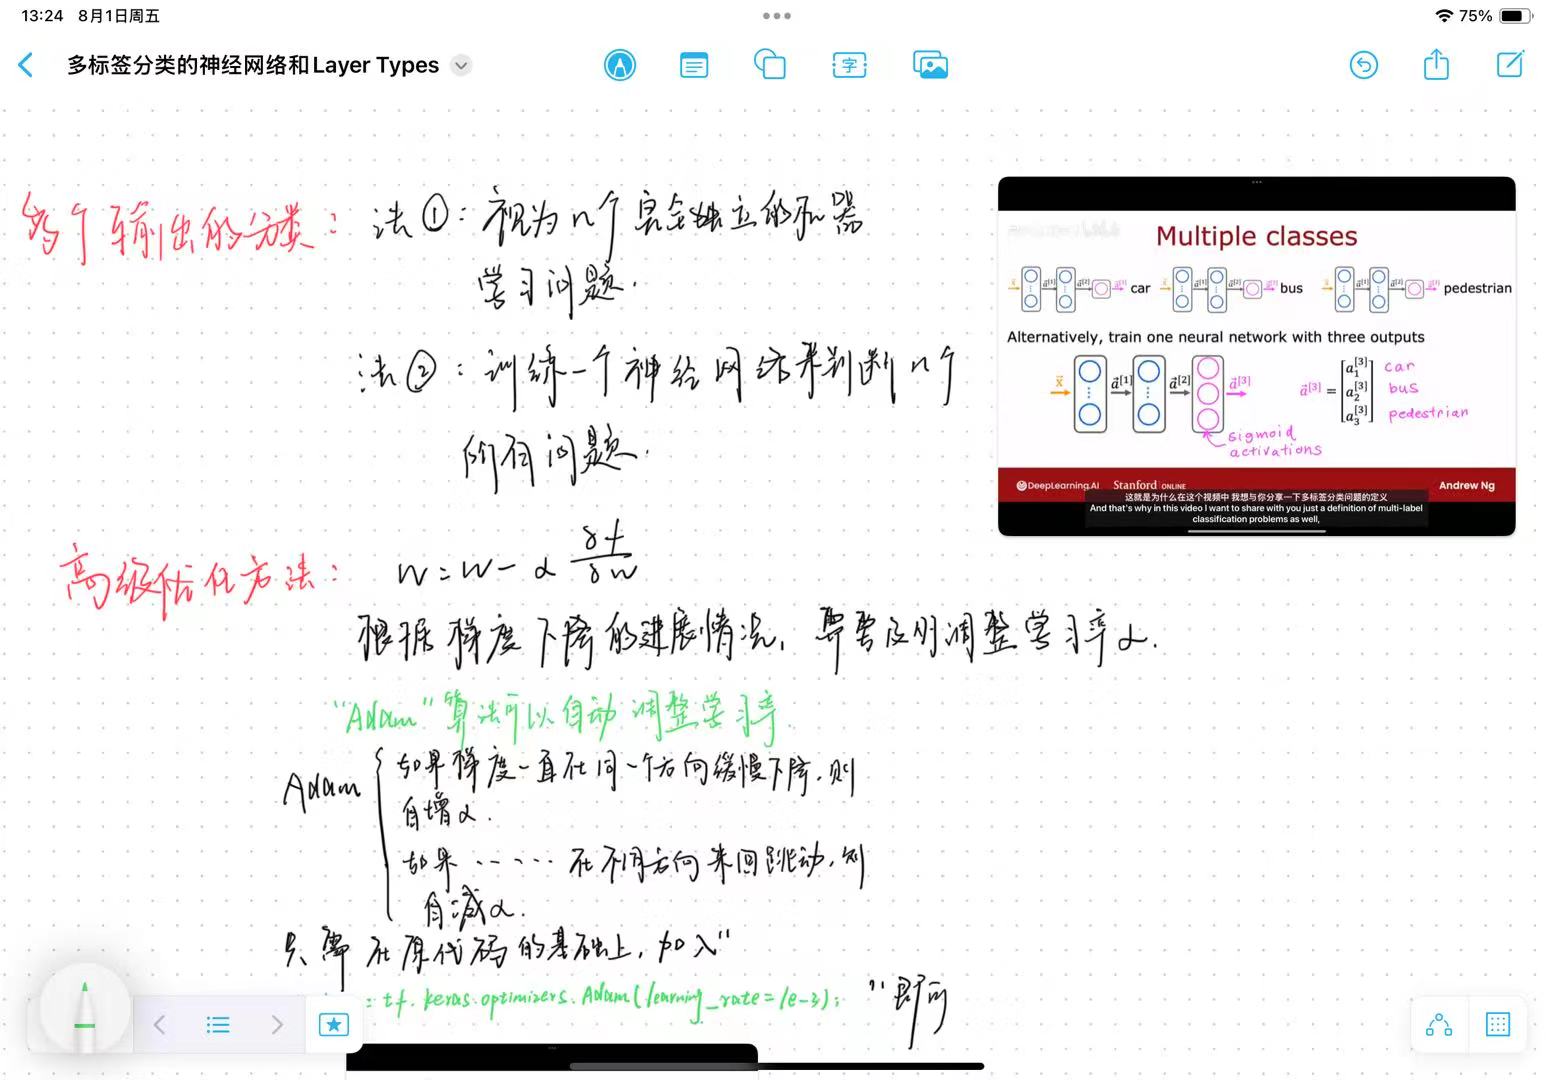 13:24 8月1日周五
75%
多标签分类的神经网络和Layer Types
字
多个输出的分类：
法①：视为n个完全独立的机器
学习问题.
法②：训练一个神经网络来判断n个
所有问题.
Multiple classes
x⃗ a⃗[1] a⃗[2] a⃗[3] car
x⃗ a⃗[1] a⃗[2] a⃗[3] bus
x⃗ a⃗[1] a⃗[2] a⃗[3] pedestrian
Alternatively, train one neural network with three outputs
x⃗ a⃗[1] a⃗[2] a⃗[3]
sigmoid
activations
a⃗[3] = [a₁[3] a₂[3] a₃[3]]
car
bus
pedestrian
DeepLearning.AI Stanford ONLINE Andrew Ng
这就是为什么在这个视频中 我想与你分享一下多标签分类问题的定义
And that's why in this video I want to share with you just a definition of multi-label
classification problems as well,
高级优化方法：
w = w - α
根据梯度下降的进展情况, 需要及时调整学习率α.
"Adam"算法可以自动调整学习率.
Adam
如果梯度一直在同一个方向缓慢下降.则
自增α.
如果 ······ 在不同方向来回跳动.则
自减α.
只需在原代码的基础上,加入"
= tf.keras.optimizers.Adam(learning_rate=1e-3); "即可